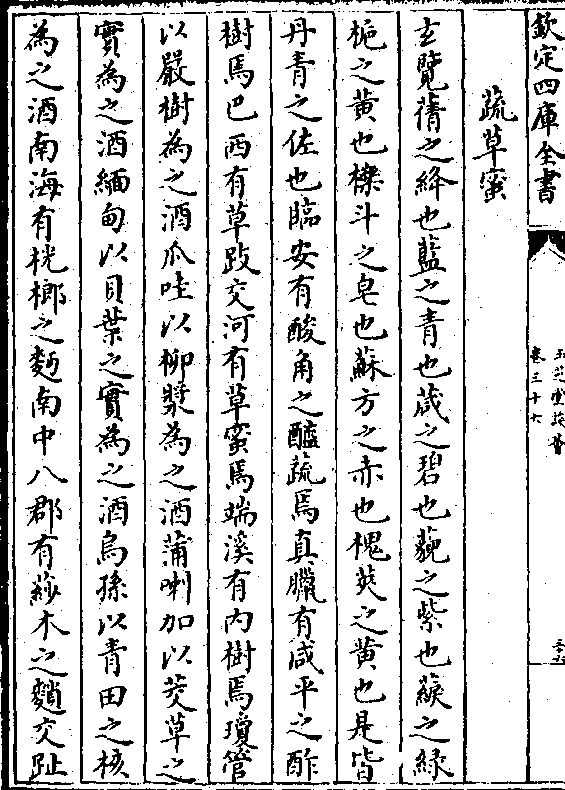 欽定四庫全書
玉芝堂談薈
卷三十六
蔬草蜜
玄覽蒨之絳也藍之青也葴之碧也藐之紫也䓞之緑
梔之黄也櫟斗之皂也蘇方之赤也槐莢之黄也是皆
丹青之佐也臨安有酸角之醯蔬焉真臘有咸平之酢
樹焉巴西有草跂交河有草蜜焉端溪有肉樹焉瓊管
以嚴樹為之酒爪哇以柳漿為之酒蒲喇加以茭草之
實為之酒緬甸以貝葉之實為之酒烏孫以青田之核
為之酒南海有桄榔之麪南中八郡有莎木之麵交趾